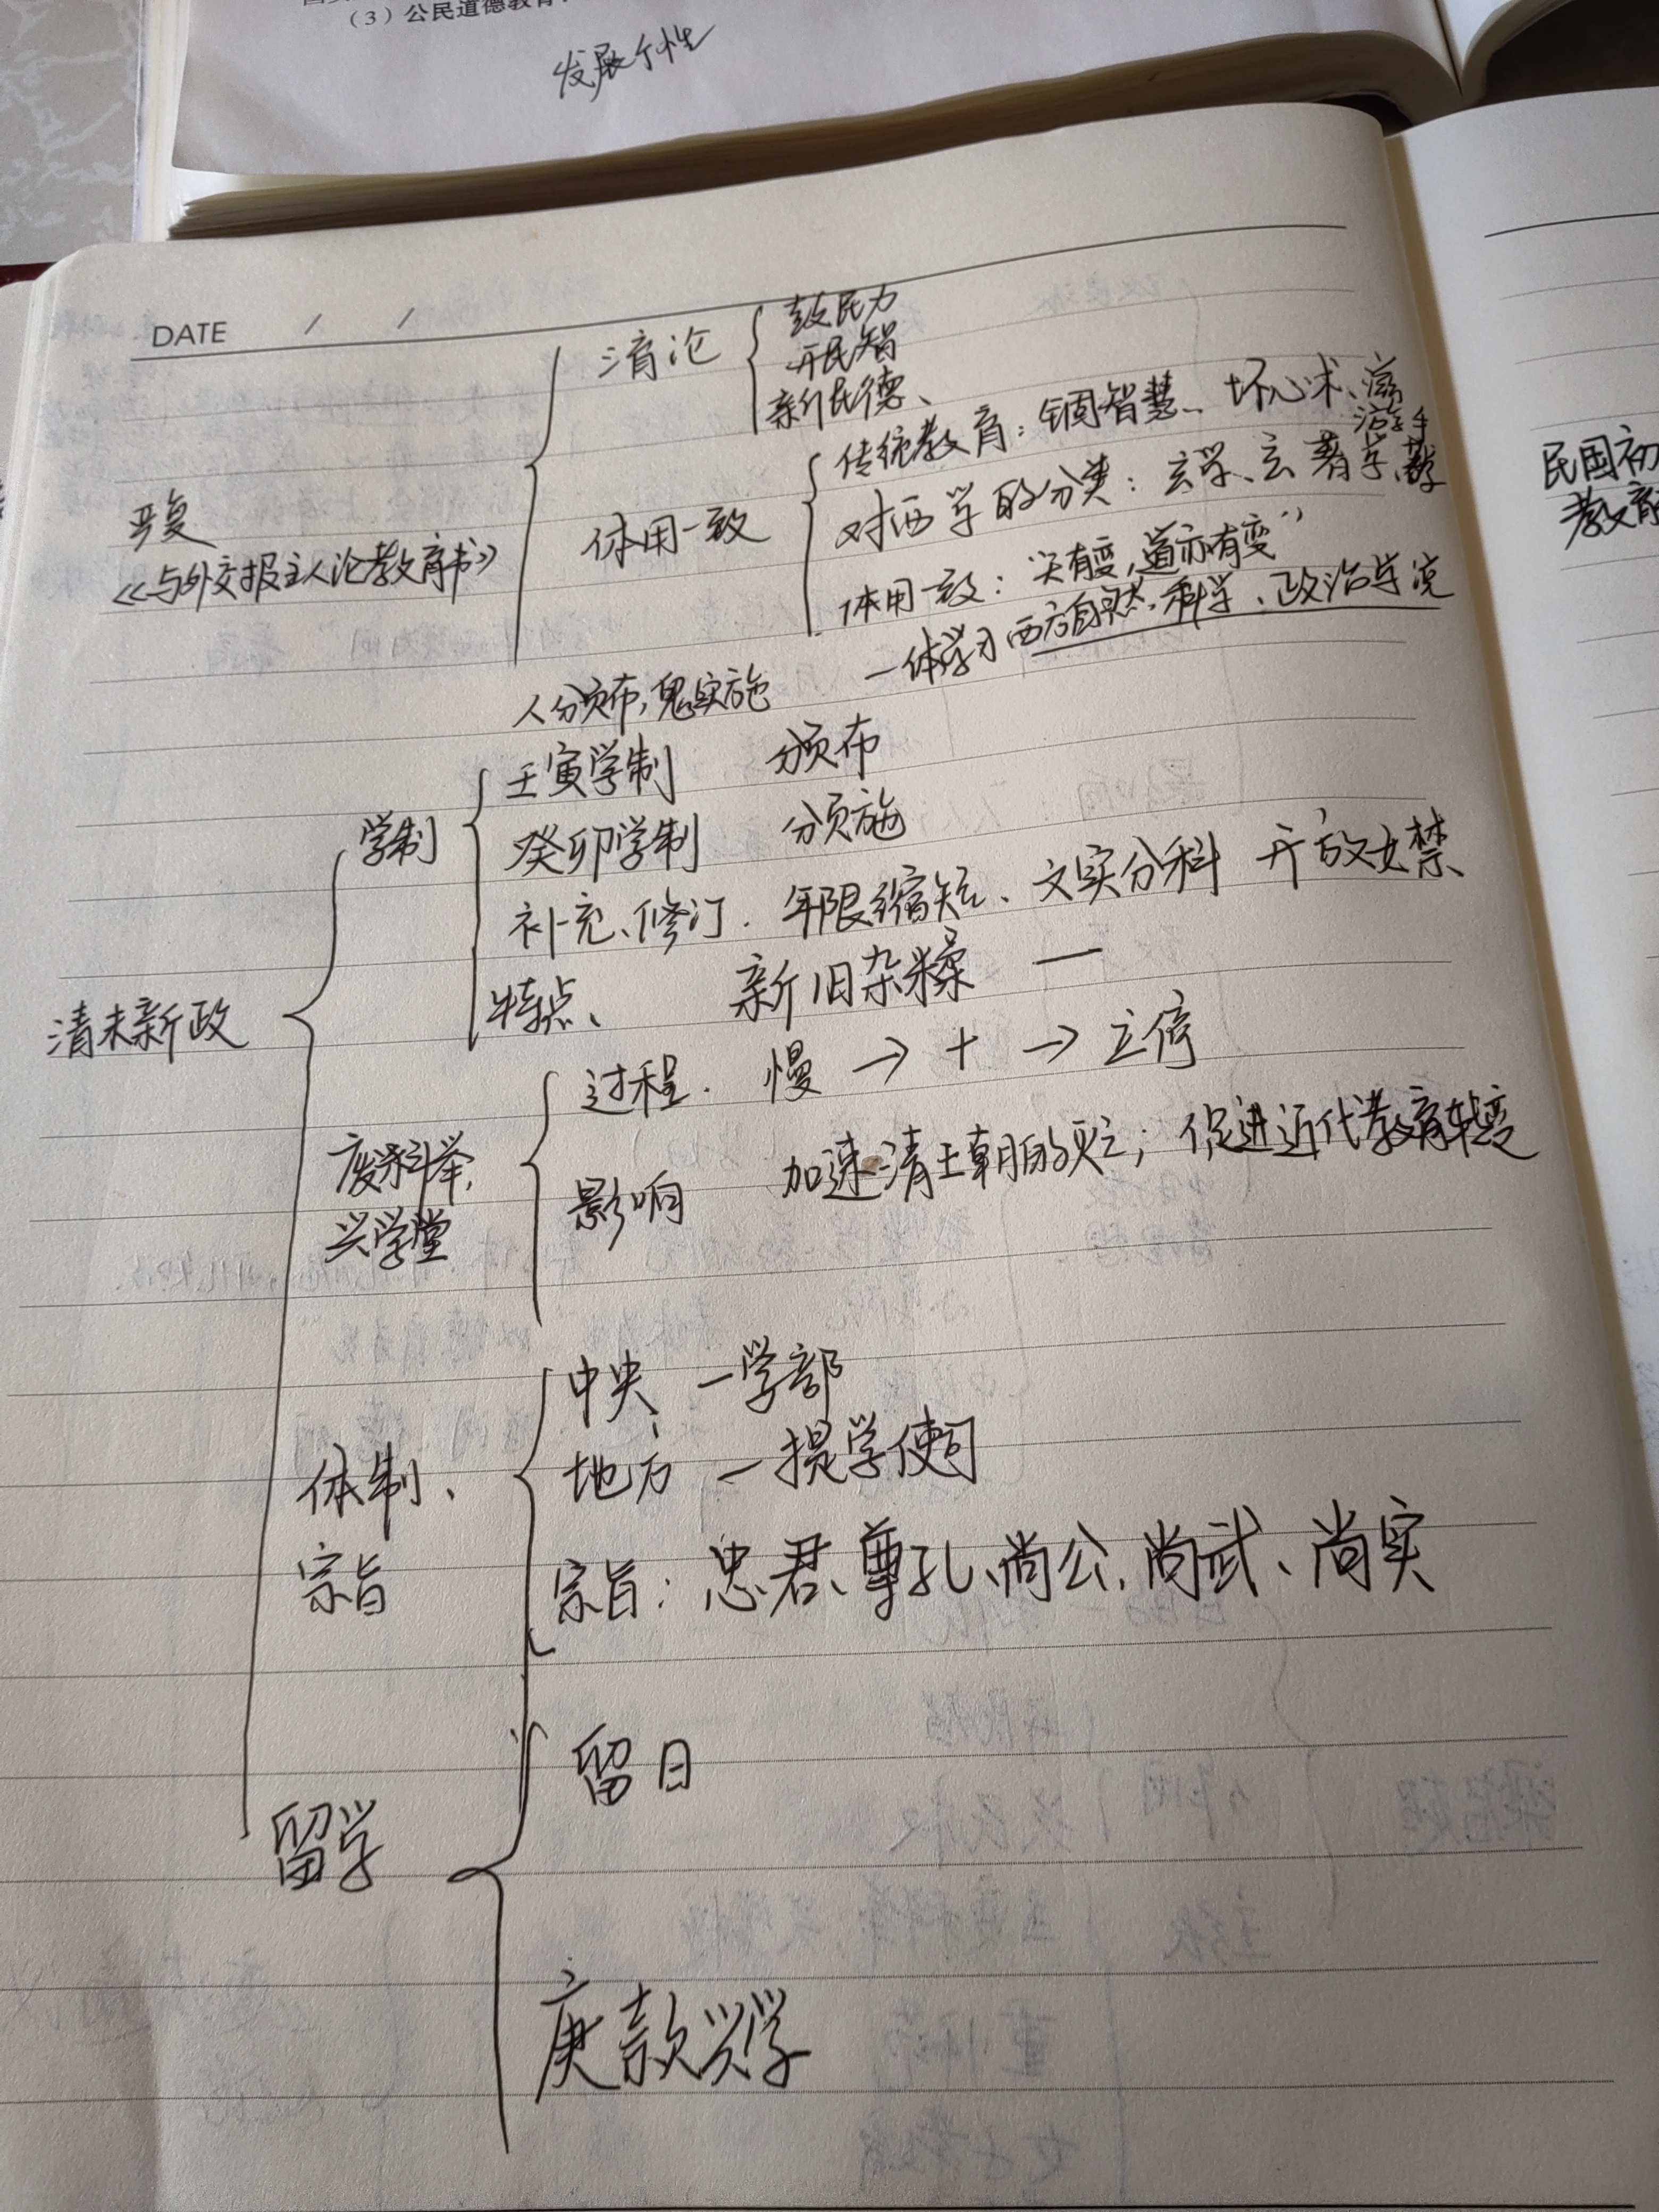 （3）公民道德教育
发展个性
DATE / /
淯论
鼓民力
开民智
新民德、
严复
《与外交报主人论教育书》
体用一致
传统教育：锢智慧、坏心术、滋
游手
对西学的分类：玄学、玄著学、著学
体用一致：“天有变，道亦有变”
一体学习西方自然科学、政治学说
人分颁布，鬼实施
清末新政
学制
壬寅学制 颁布
癸卯学制 颁施
补充、修订. 年限缩短、文实分科 开放女禁
特点、 新旧杂糅 —
废科举，
兴学堂
过程. 慢 → 十 → 立停
影响 加速清王朝的灭亡；促进近代教育转变
体制、
宗旨
中央 — 学部
地方 — 提学使司
宗旨：忠君、尊孔、尚公、尚武、尚实
留学
留日
庚款兴学
民国初
教育